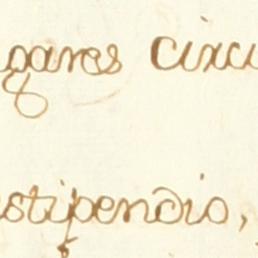 gares circu
estipendio,